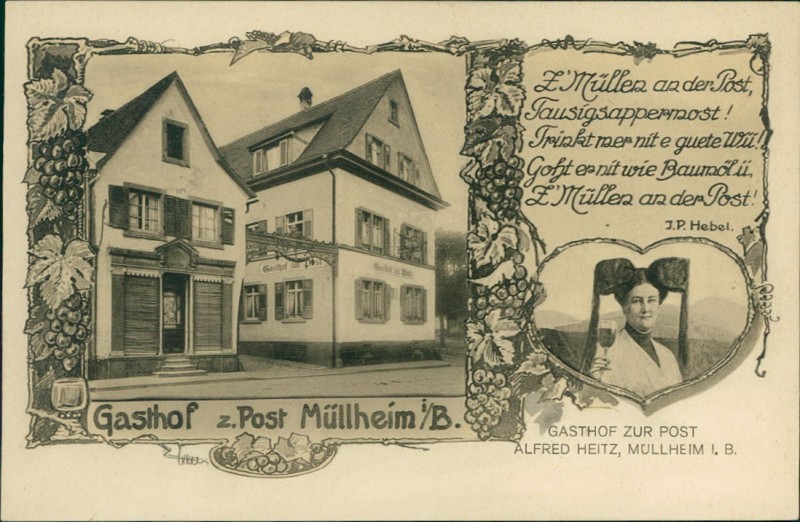 Z'Müllen an der Post,
Tausigsappermost!
Trinkt mer nit e guete Wii!
Goht er nit wie Baumöl ii,
Z'Müllen an der Post!
J.P. Hebel.
Gasthof zur Post
Gasthof zur Post
Gasthof z. Post Müllheim i/B.
GASTHOF ZUR POST
ALFRED HEITZ, MÜLLHEIM I. B.